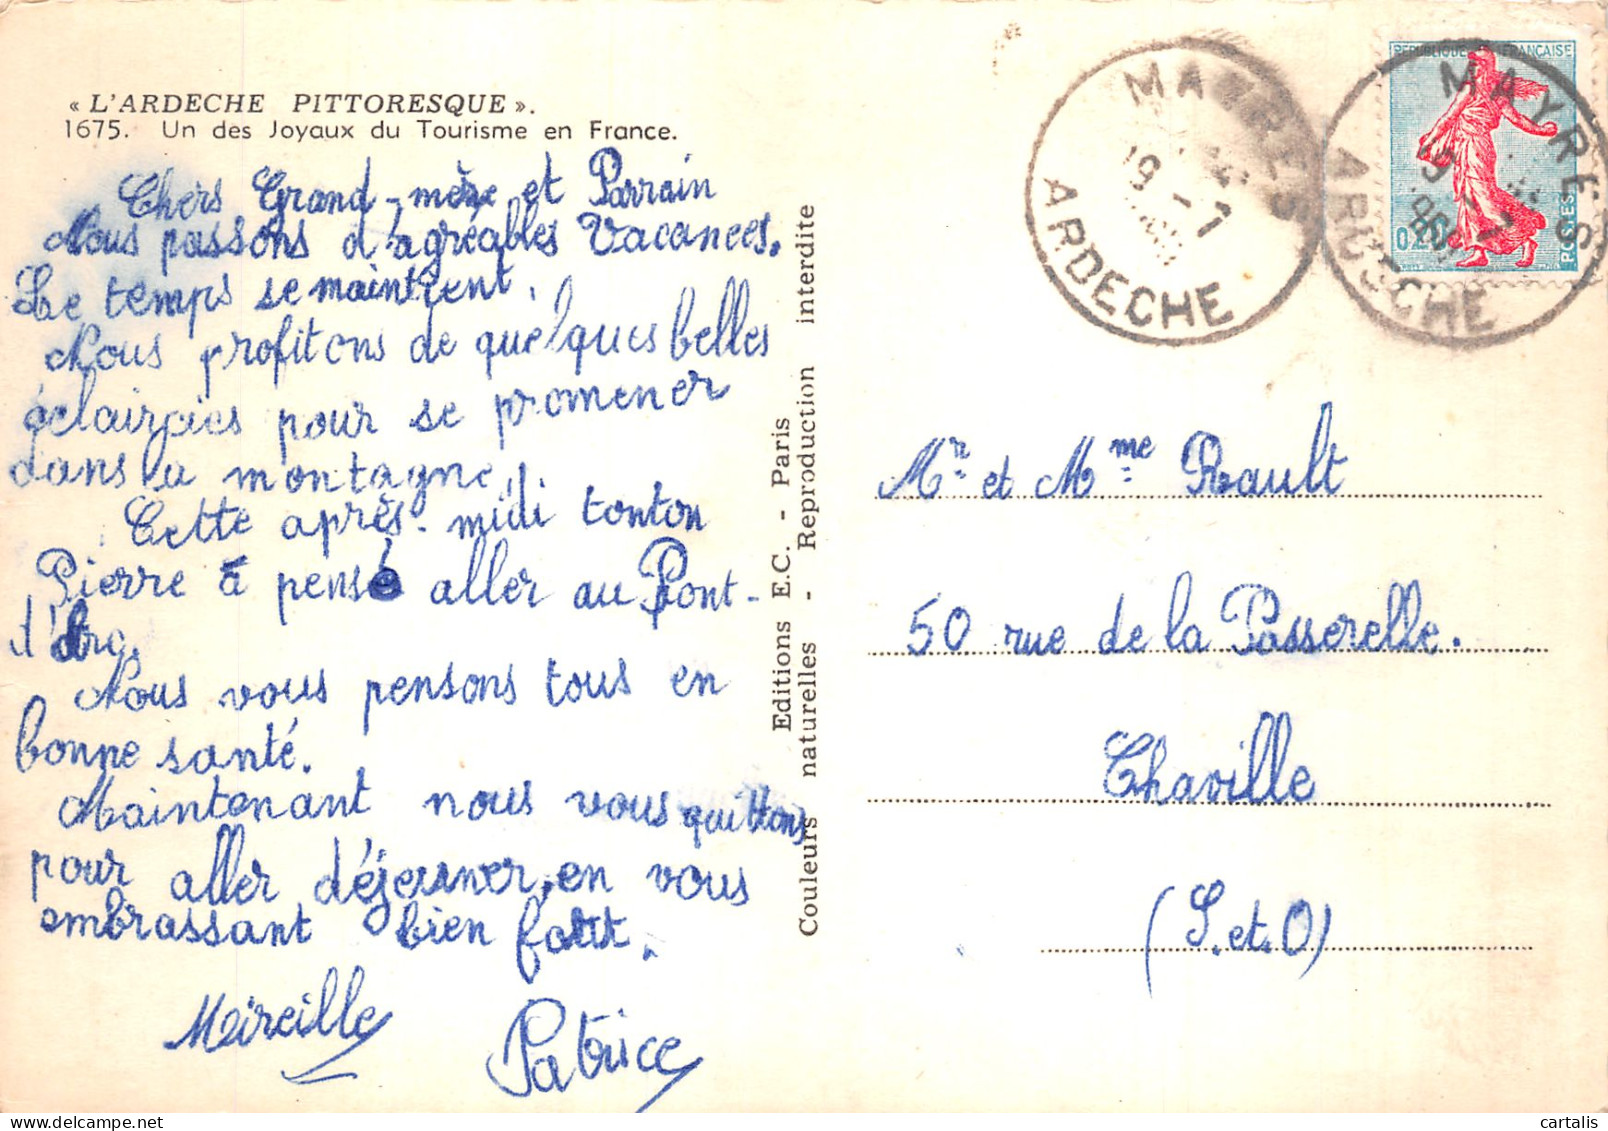 « L'ARDECHE PITTORESQUE ».
1675. Un des Joyaux du Tourisme en France.
Chers Grand-mère et Parrain
Nous passons d'agréables Vacances.
Le temps se maintient.
Nous profitons de quelques belles
éclaircies pour se promener
dans la montagne.
Cette après-midi tonton
Pierre à pensé aller au Pont-
d'Arc.
Nous vous pensons tous en
bonne santé.
Maintenant nous vous quittons
pour aller déjeuner, en vous
embrassant bien fort.
Mireille
Patrice
Editions E.C. - Paris
Couleurs naturelles - Reproduction interdite
MAYRES
19-7
ARDECHE
REPUBLIQUE FRANÇAISE
POSTES
MAYRES
19-7
ARDECHE
Mr et Mme Rault
50 rue de la Passerelle.
Chaville
(S. et. O)
cartalis
www.delcampe.net